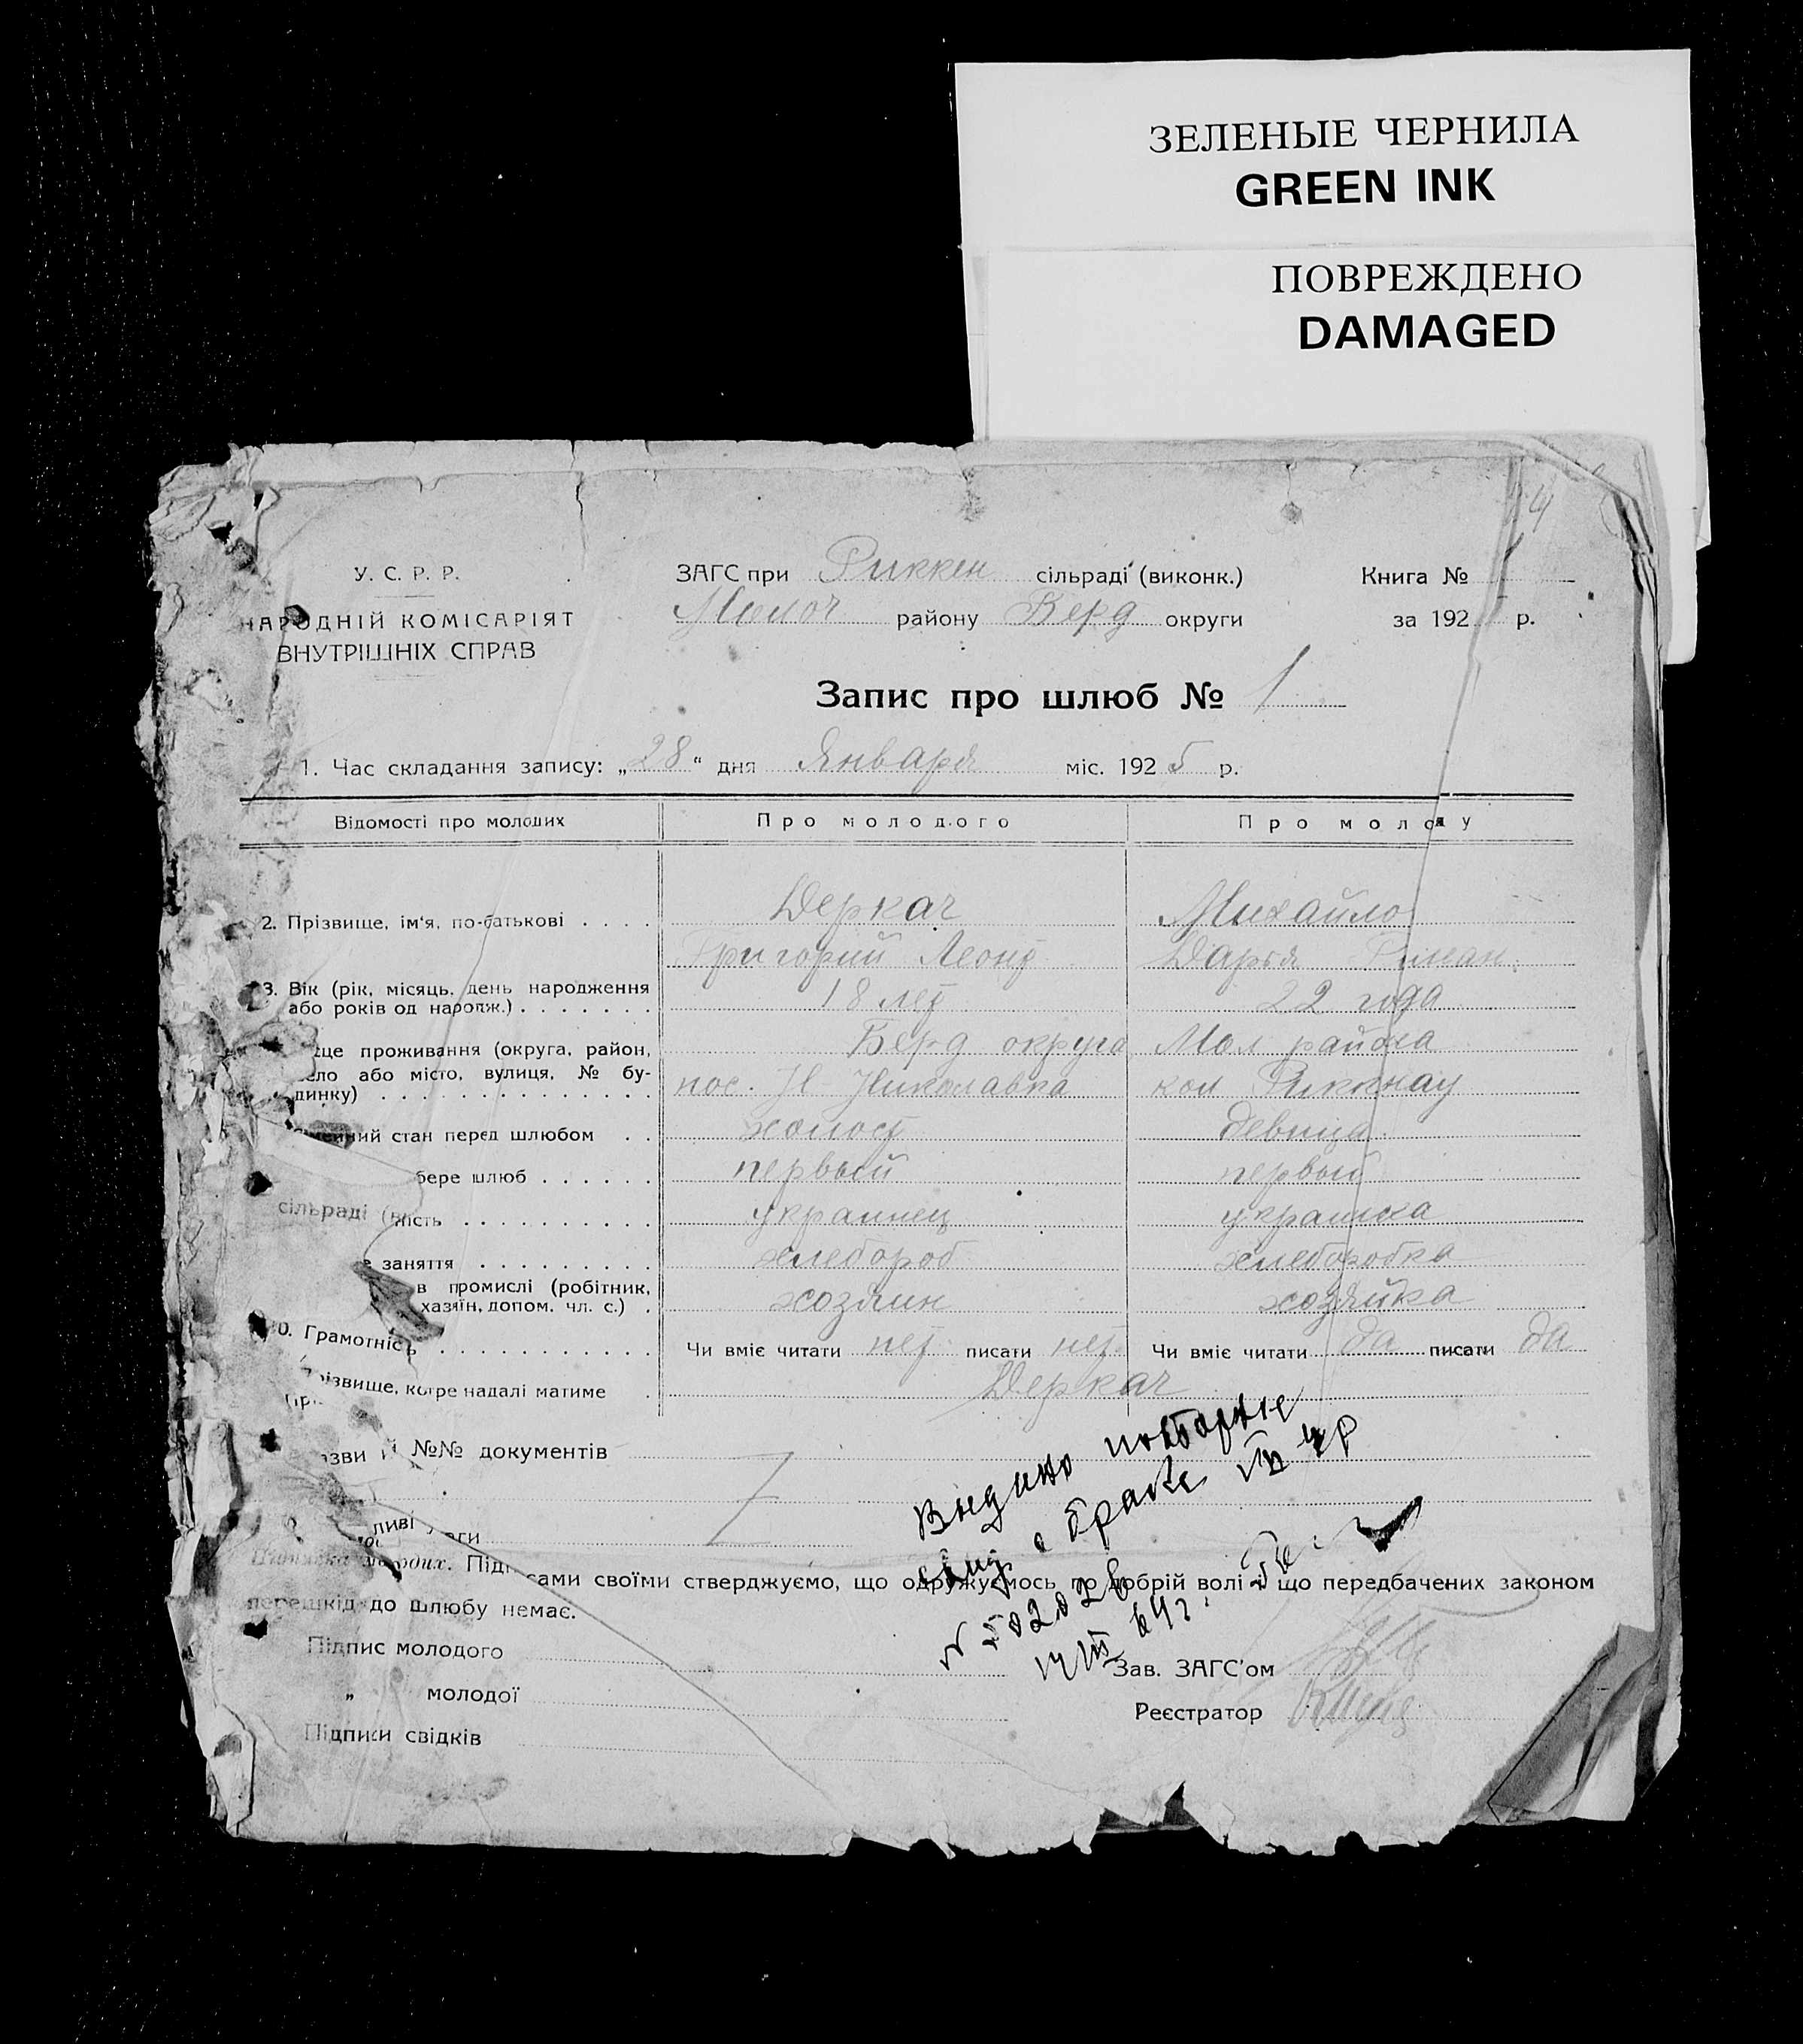 ЗЕЛЕНЫЕ ЧЕРНИЛА
GREEN INK
ПОВРЕЖДЕНО
DAMAGED
У. С. Р. Р.
НАРОДНІЙ КОМІСАРІЯТ
ВНУТРІШНІХ СПРАВ
ЗАГС при Риккен сільраді (виконк.)
Молоч району Берд округи
Книга №
за 192 р.
Запис про шлюб № 1
1. Час складання запису: „28“ дня Января міс. 1925 р.
Відомості про молодих Про молодого Про молоду
2. Прізвище, ім'я, по-батькові Деркач Михайло
Григорий Леонд Дарья Роман.
3. Вік (рік, місяць, день народження
або років од народж.) 18 лет 22 года
сце проживання (округа, район, Берд округа Мол района
село або місто, вулиця, № бу-
динку) пос. Н-Николавка кол Рикенау
мейний стан перед шлюбом холост девица
бере шлюб первый первый
сільраді (
ність украинец украинка
е заняття хлебороб хлеборобка
в промислі (робітник,
хазяїн, допом. чл. с.) хозяин хозяйка
10. Грамотність Чи вміє читати нет писати нет Чи вміє читати да писати да
Прізвище, котре надалі матиме Деркач
азви й №№ документів
ливі уваги
Выдано повторное
свид о браке
молодих. Підписами своїми стверджуємо, що одружуємось по добрій волі й що передбачених законом
перешкід до шлюбу немає.
Підпис молодого
„ молодої
Підписи свідків
Зав. ЗАГС'ом
Реєстратор